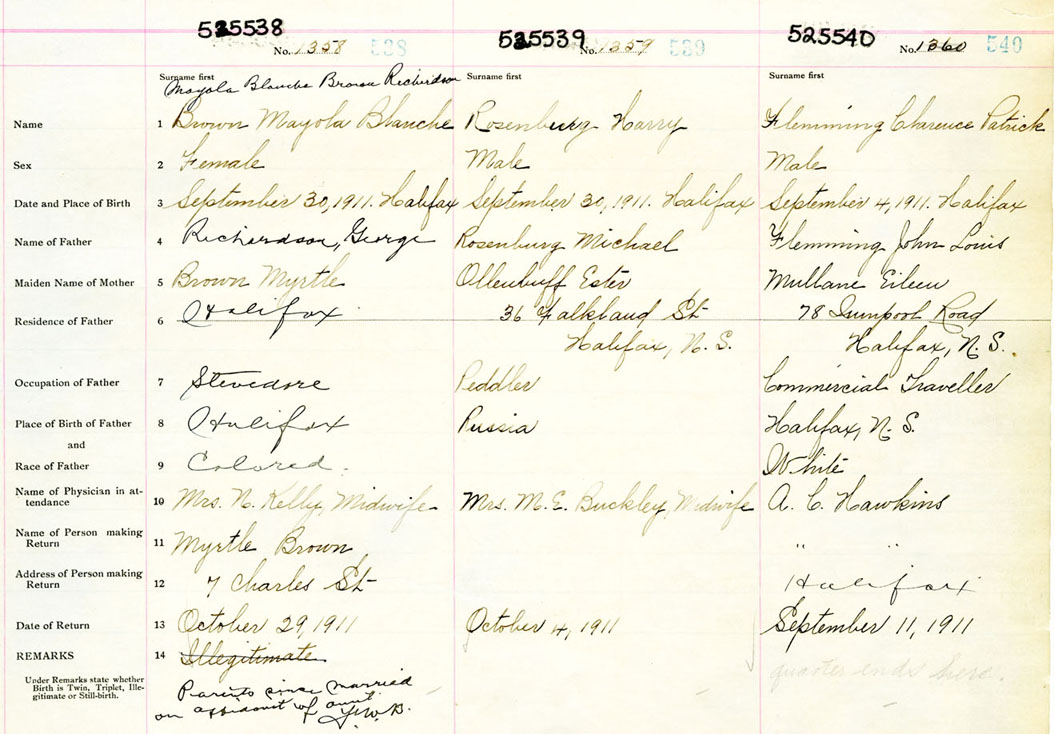 525538 525539 525540
No. 1358 538 No. 1359 539 No. 1360 540
Surname first Surname first Surname first
Mayola Blanche Brown Richardson
Name 1 Brown Mayola Blanche Rosenburg Harry Flemming Clarence Patrick
Sex 2 Female Male Male
Date and Place of Birth 3 September 30, 1911. Halifax September 30, 1911. Halifax September 4, 1911. Halifax
Name of Father 4 Richardson, George Rosenburg Michael Flemming John Louis
Maiden Name of Mother 5 Brown Myrtle Ollenbuff Ester Mullane Eileen
Residence of Father 6 Halifax 36 Falkland St 78 Quinpool Road
Halifax, N. S. Halifax, N. S.
Occupation of Father 7 Stevedore Peddler Commercial Traveller
Place of Birth of Father 8 Halifax Russia Halifax, N. S.
and
Race of Father 9 Colored. White
Name of Physician in at-
tendance 10 Mrs. N. Kelly, Midwife Mrs. M. E. Buckley, Midwife A. C. Hawkins
Name of Person making
Return 11 Myrtle Brown " "
Address of Person making
Return 12 7 Charles St Halifax
Date of Return 13 October 29, 1911 October 4, 1911 September 11, 1911
REMARKS 14 Illegitimate
quarter ends here.
Under Remarks state whether
Birth is Twin, Triplet, Ille-
gitimate or Still-birth.
Parents since married
on affidavit of